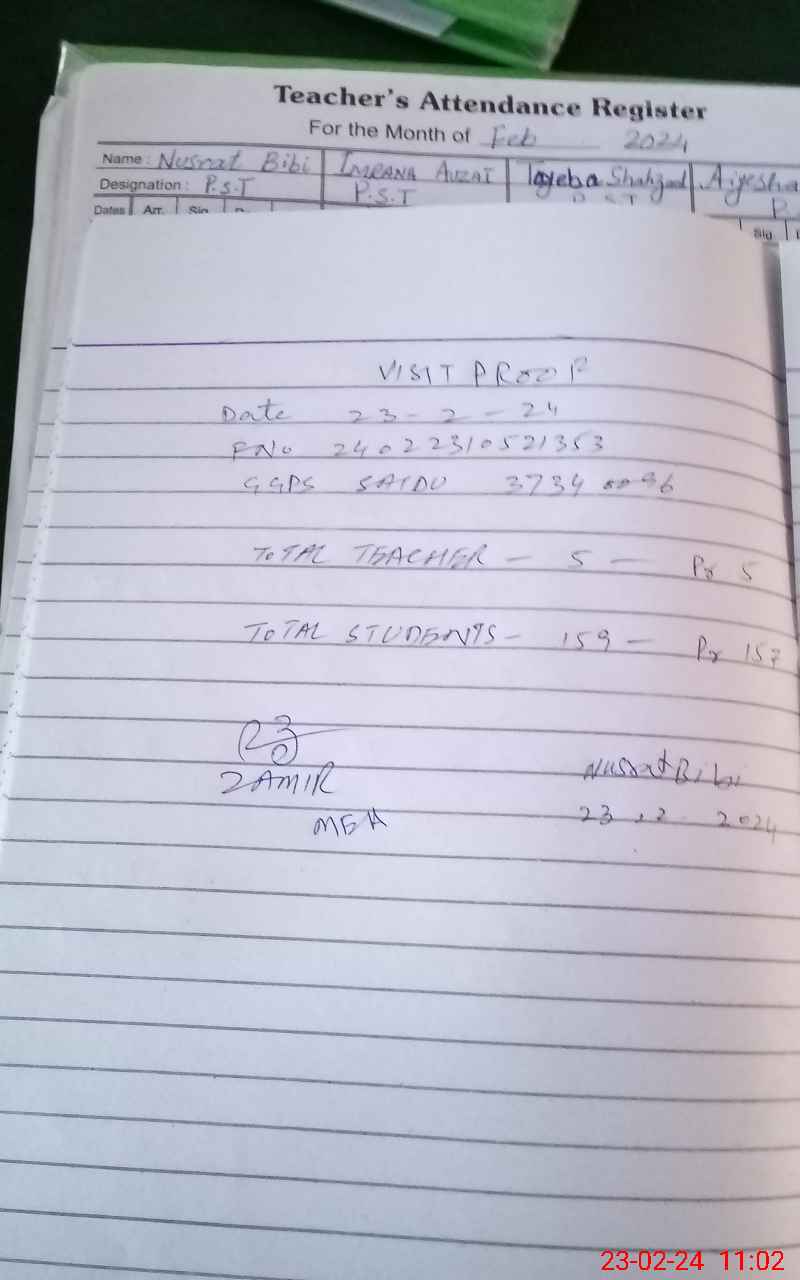 Teacher's Attendance Register
For the Month of Feb 2024
Name : Nusrat Bibi IMRANA AUZAI Tayeba Shahzad Aiyesha
Designation : P.S.T P.S.T P S T P.
Dates Arr. Sig Sig
VISIT PROOF
Date 23-2-24
FNo 24022310521353
GGPS SAIDU 37340096
TOTAL TEACHER - 5 - Pr 5
TOTAL STUDENTS - 159 - Pr 157
ZAMIR Nusrat Bibi
MEA 23.2.2024
23-02-24 11:02